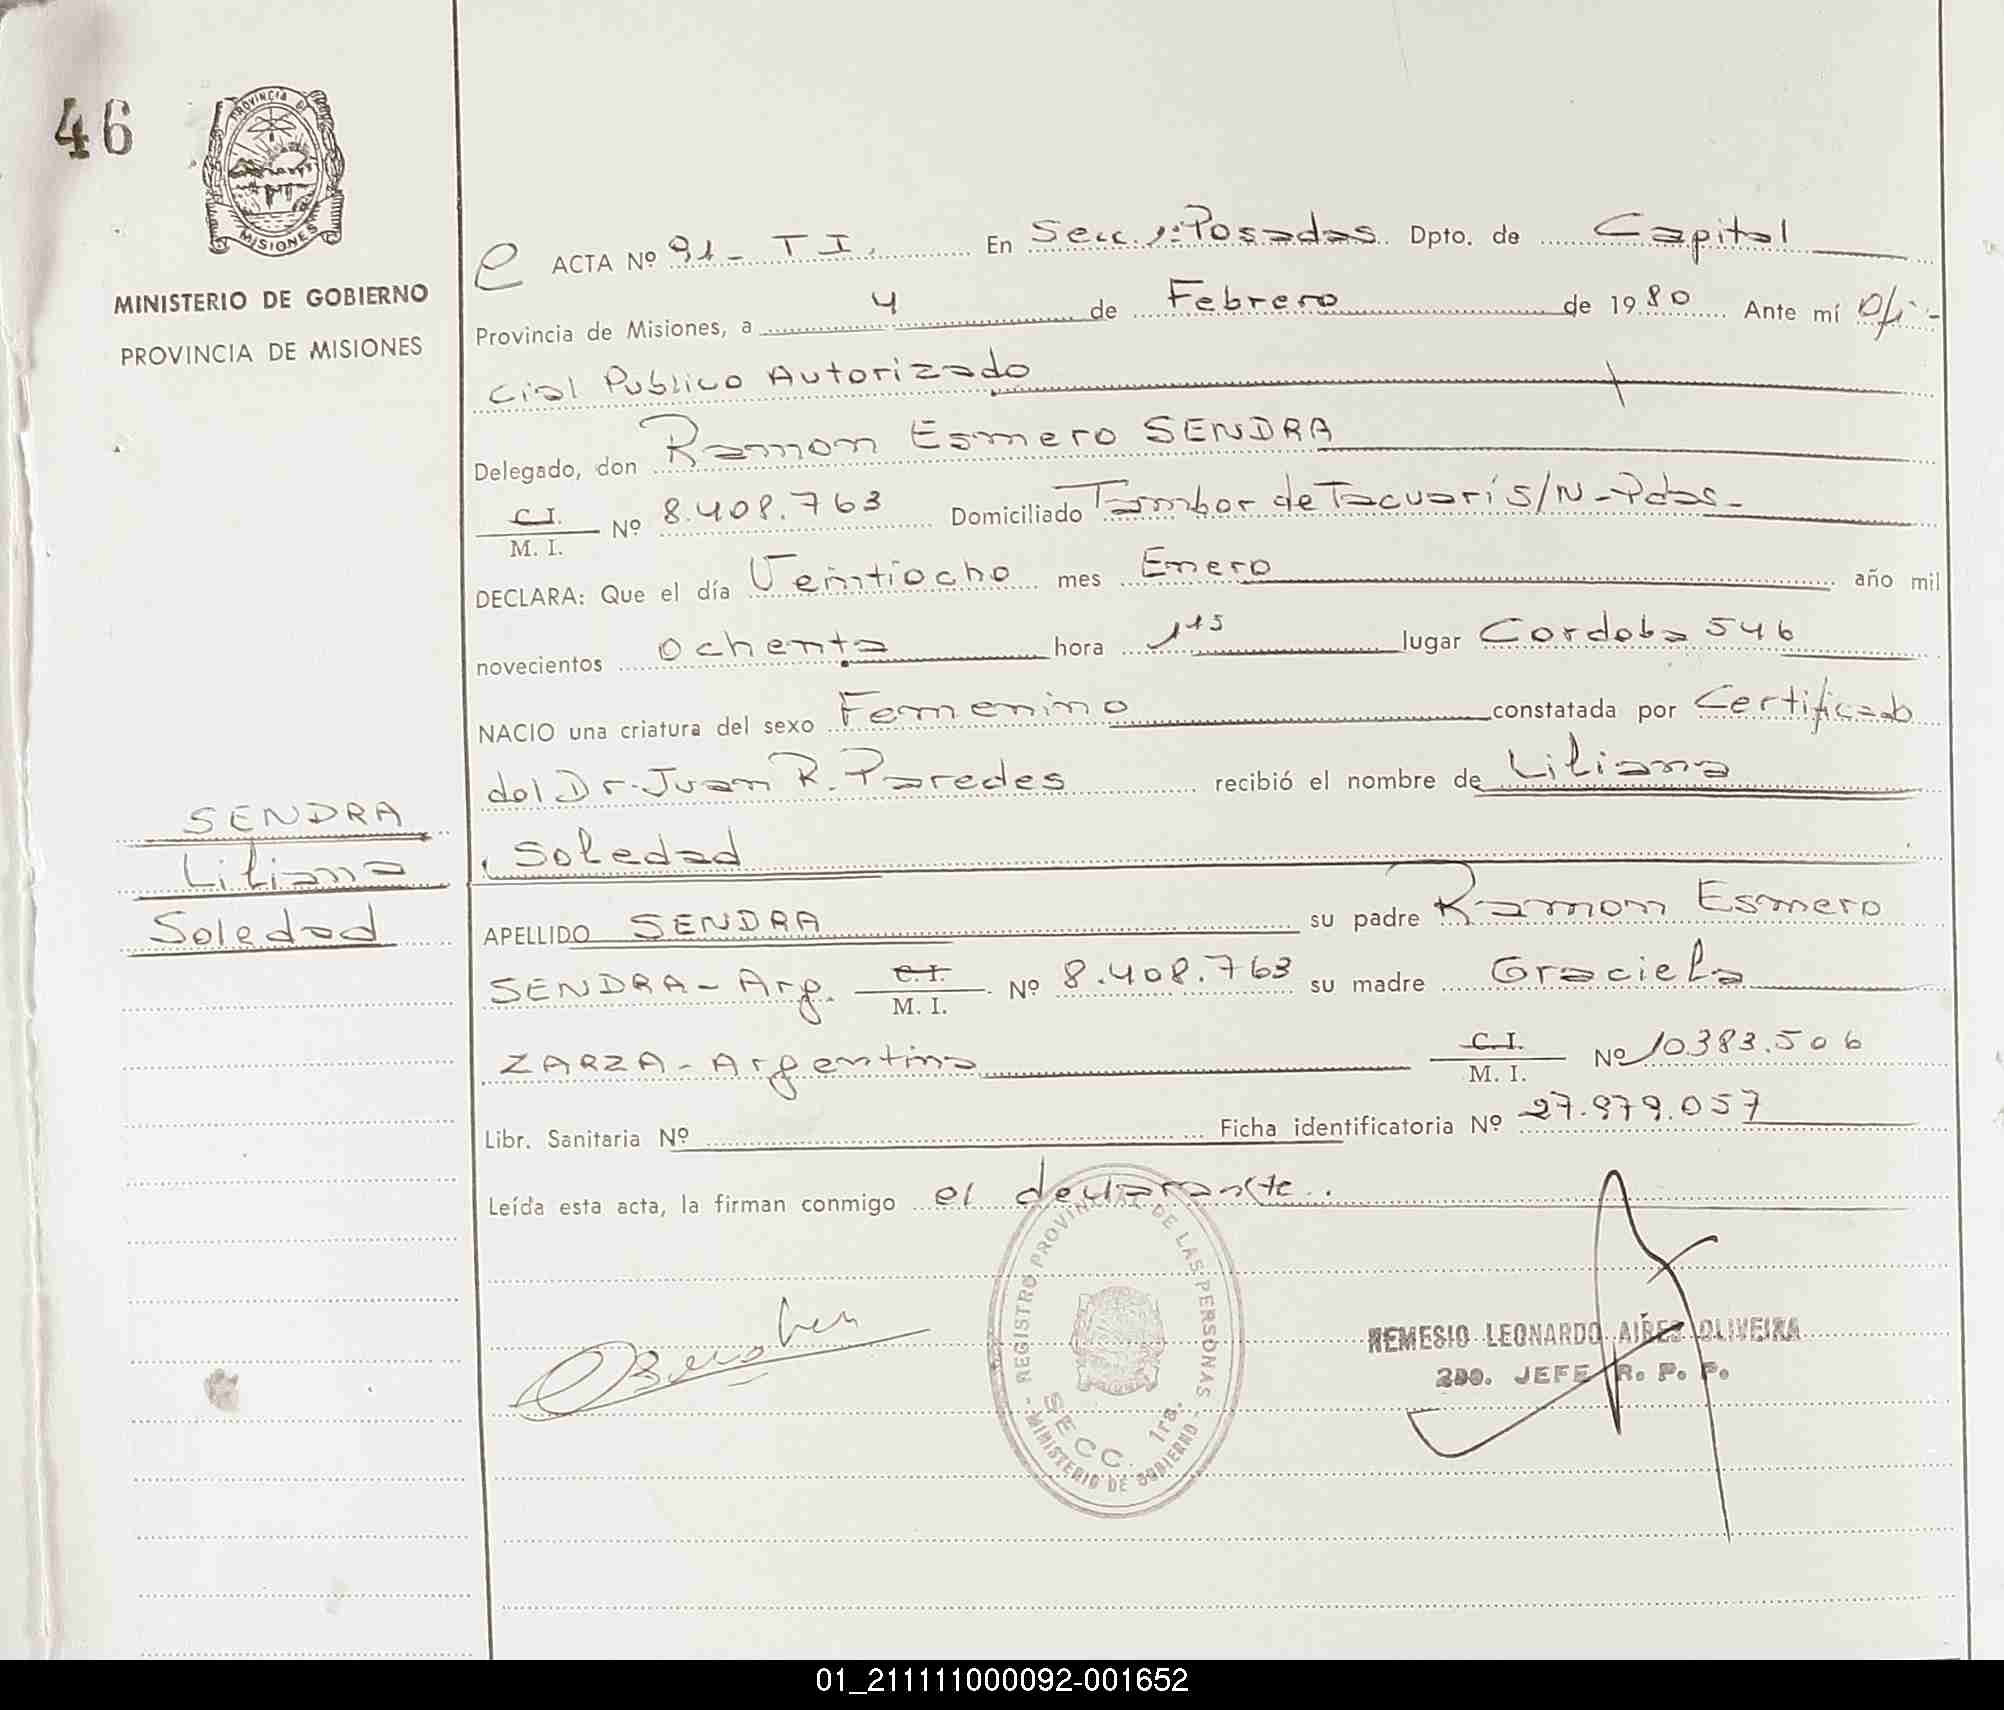 46
PROVINCIA DE
MISIONES
MINISTERIO DE GOBIERNO
PROVINCIA DE MISIONES
ACTA Nº 91 - T I. En Secc 1: Posadas Dpto. de Capital
Provincia de Misiones, a 4 de Febrero de 1980 Ante mí Ofi-
cial Publico Autorizado
Delegado, don Ramon Esmero SENDRA
C.I.
M. I. Nº 8.408.763 Domiciliado Tambor de Tacuarí S/N - Pdas -
DECLARA: Que el día Veintiocho mes Enero año mil
novecientos ochenta hora 1 15 lugar Cordoba 546
NACIO una criatura del sexo Femenino constatada por Certificado
del Dr. Juan R. Paredes recibió el nombre de Liliana
Soledad
SENDRA
Liliana
Soledad
APELLIDO SENDRA su padre Ramon Esmero
SENDRA - Arg. C.I.
M. I. Nº 8.408.763 su madre Graciela
ZARZA - Argentina C.I.
M. I. Nº 10383.506
Libr. Sanitaria Nº Ficha identificatoria Nº 27.979.057
Leída esta acta, la firman conmigo el declarante.
- REGISTRO PROVINCIAL DE LAS PERSONAS -
SECC. 1ra.
MINISTERIO DE GOBIERNO
REMESIO LEONARDO AIRES OLIVEIRA
2DO. JEFE R. P. P.
01_211111000092-001652